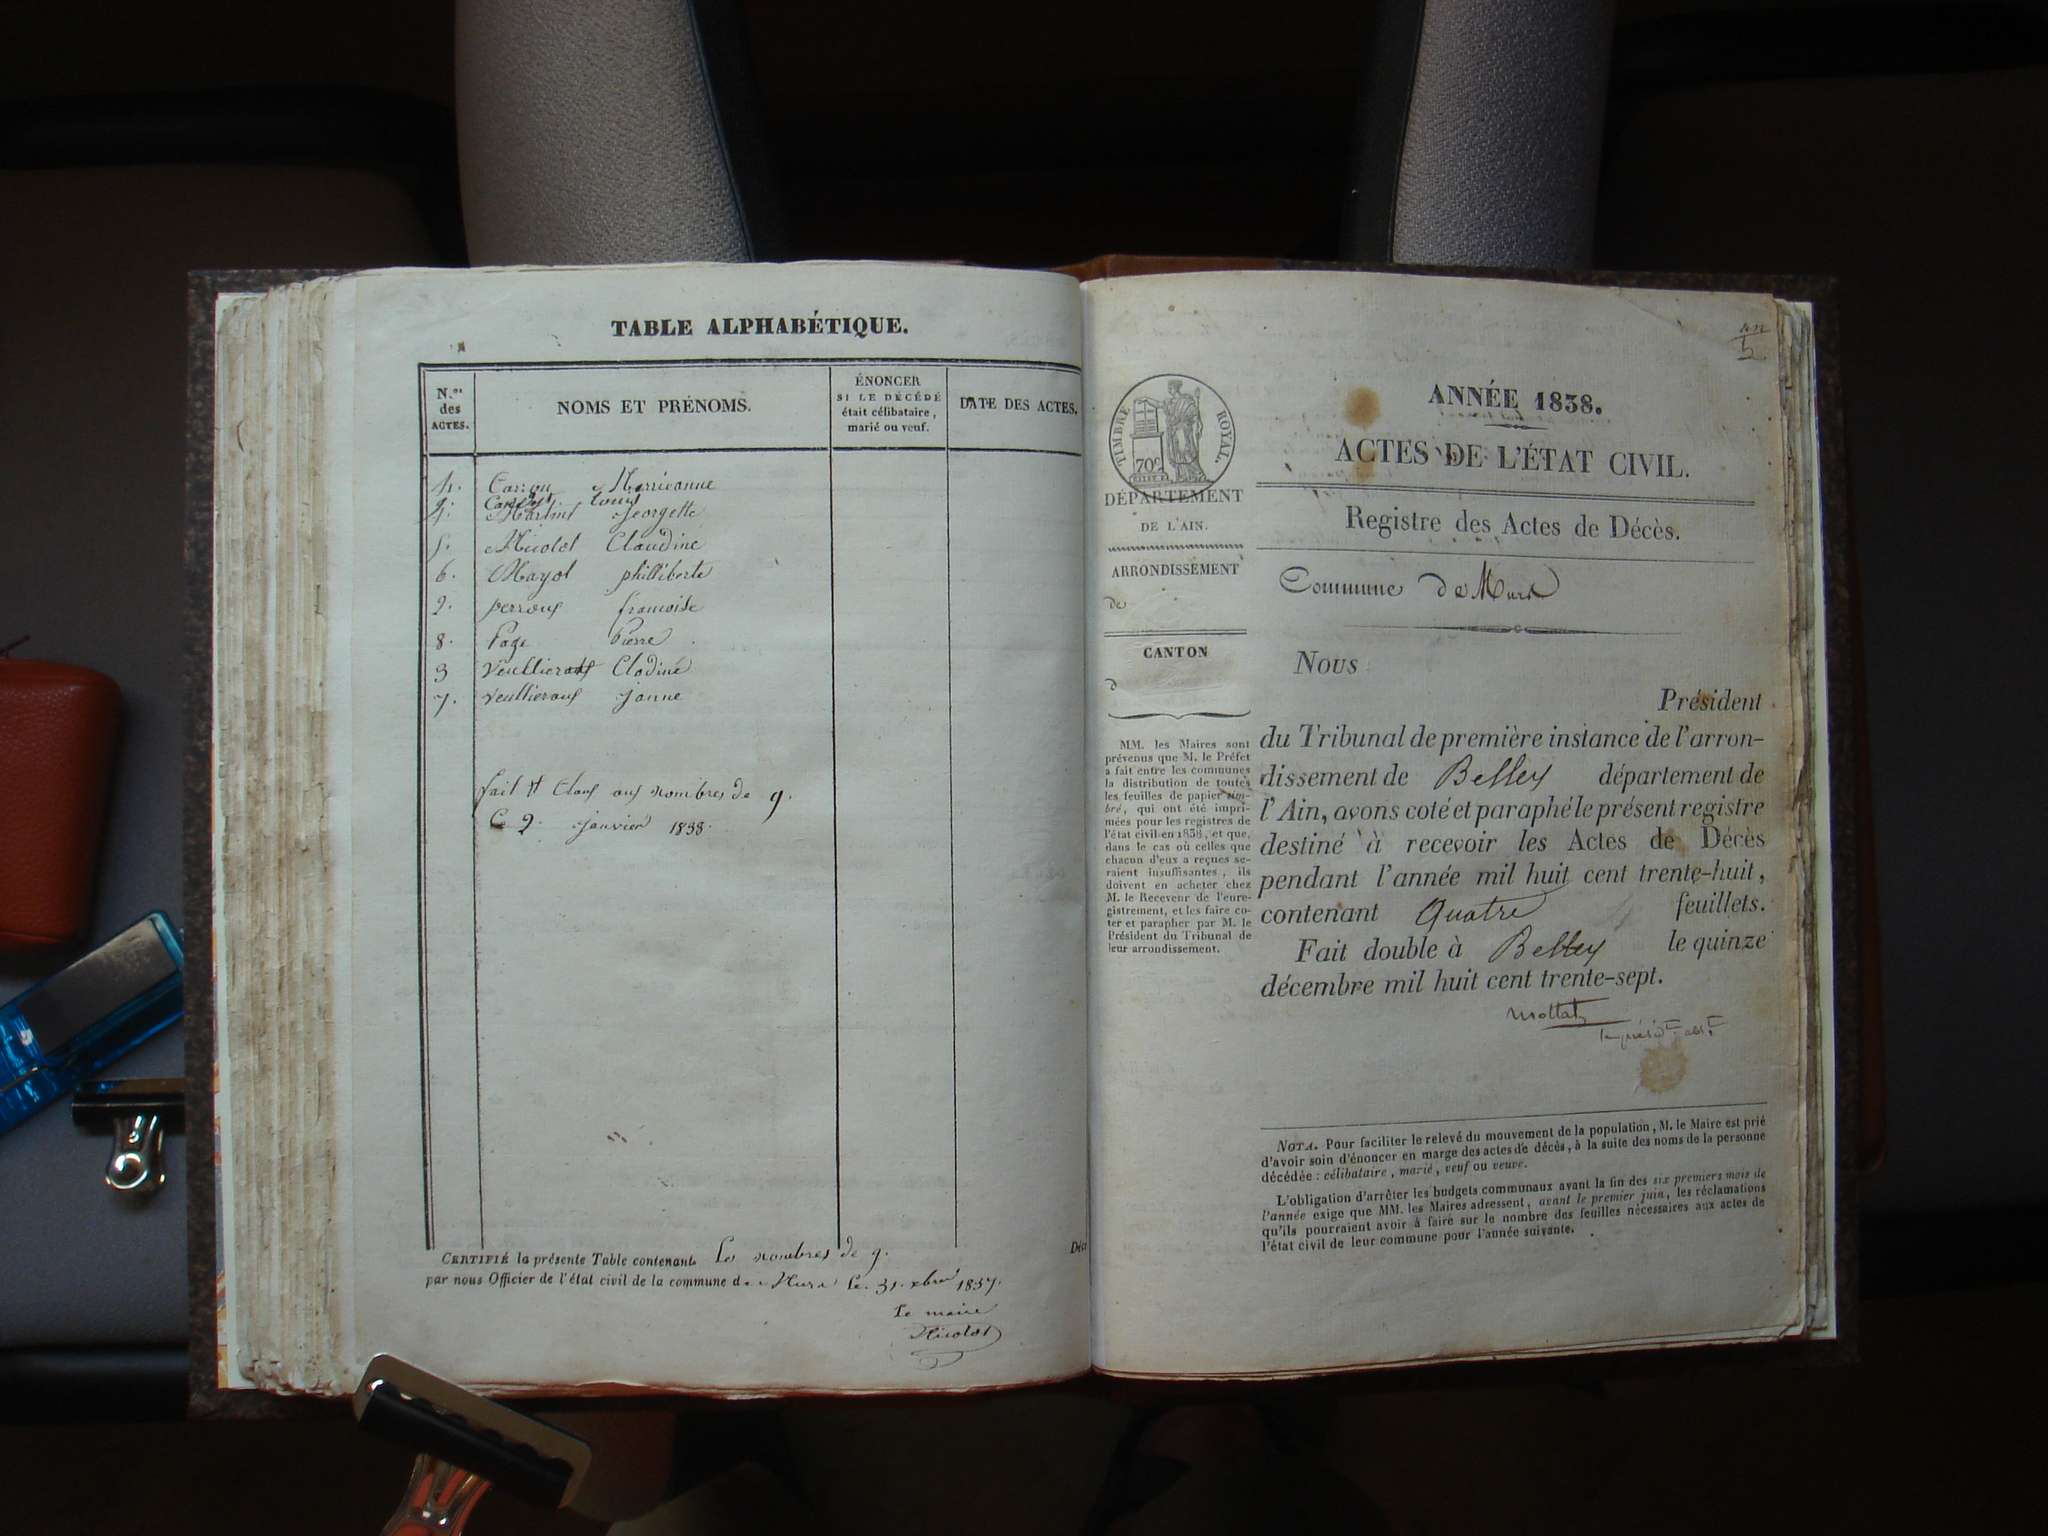 TABLE ALPHABÉTIQUE.
N.os des ACTES.
NOMS ET PRÉNOMS.
ÉNONCER
SI LE DÉCÉDÉ
était célibataire,
marié ou veuf.
DATE DES ACTES.
Marrieanne
Louis
Martint Jeorgette
5. Nicolot Claudine
6. Mayol philliberte
2. perrous francoise
8. Page Pierre
3 Veullierous Clodine
7. veullierous janne
fait et Clous aus nombres de 9.
Ce 2. janvier 1838.
CERTIFIÉ la présente Table contenant Les nombres de 9.
par nous Officier de l'état civil de la commune de Murs le 31. xbre 1837.
Le maire
Nicolot
ANNÉE 1838.
ACTES DE L'ÉTAT CIVIL.
Registre des Actes de Décès.
Commune de Murs
TIMBRE ROYAL.
70c
DÉPARTEMENT
DE L'AIN.
ARRONDISSEMENT
de
CANTON
d
MM. les Maires sont
prévenus que M. le Préfet
a fait entre les communes
la distribution de toutes
les feuilles de papier tim-
bré, qui ont été impri-
mées pour les registres de
l'état civil en 1838, et que,
dans le cas où celles que
chacun d'eux a reçues se-
raient insuffisantes, ils
doivent en acheter chez
M. le Receveur de l'enre-
gistrement, et les faire co-
ter et parapher par M. le
Président du Tribunal de
leur arrondissement.
Nous
Président
du Tribunal de première instance de l'arron-
dissement de Belley département de
l'Ain, avons coté et paraphé le présent registre
destiné à recevoir les Actes de Décès
pendant l'année mil huit cent trente-huit,
contenant Quatre feuillets.
Fait double à Belley le quinze
décembre mil huit cent trente-sept.
NOTA. Pour faciliter le relevé du mouvement de la population, M. le Maire est prié
d'avoir soin d'énoncer en marge des actes de décès, à la suite des noms de la personne
décédée : célibataire, marié, veuf ou veuve.
L'obligation d'arrêter les budgets communaux avant la fin des six premiers mois de
l'année exige que MM. les Maires adressent, avant le premier juin, les réclamations
qu'ils pourraient avoir à faire sur le nombre des feuilles nécessaires aux actes de
l'état civil de leur commune pour l'année suivante.